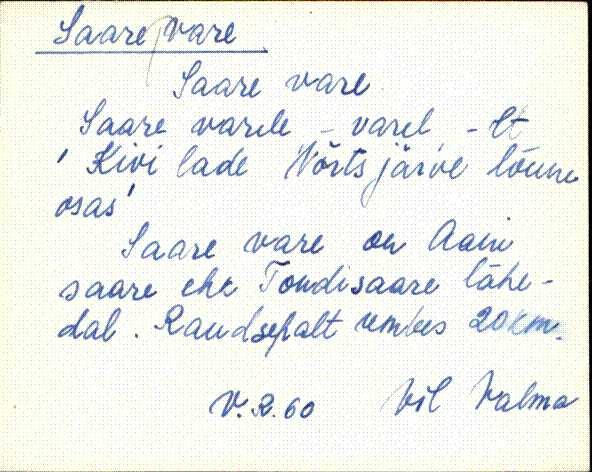 Saare vare
Saare vare
Saare varele - varel - lt
'Kivi lade Võrtsjärve lõuna
osas'
Saare vare on Aaini
saare ehk Tondisaare lähe-
dal. Raudsepalt umbes 20 km.
V.R. 60 Vil Valma